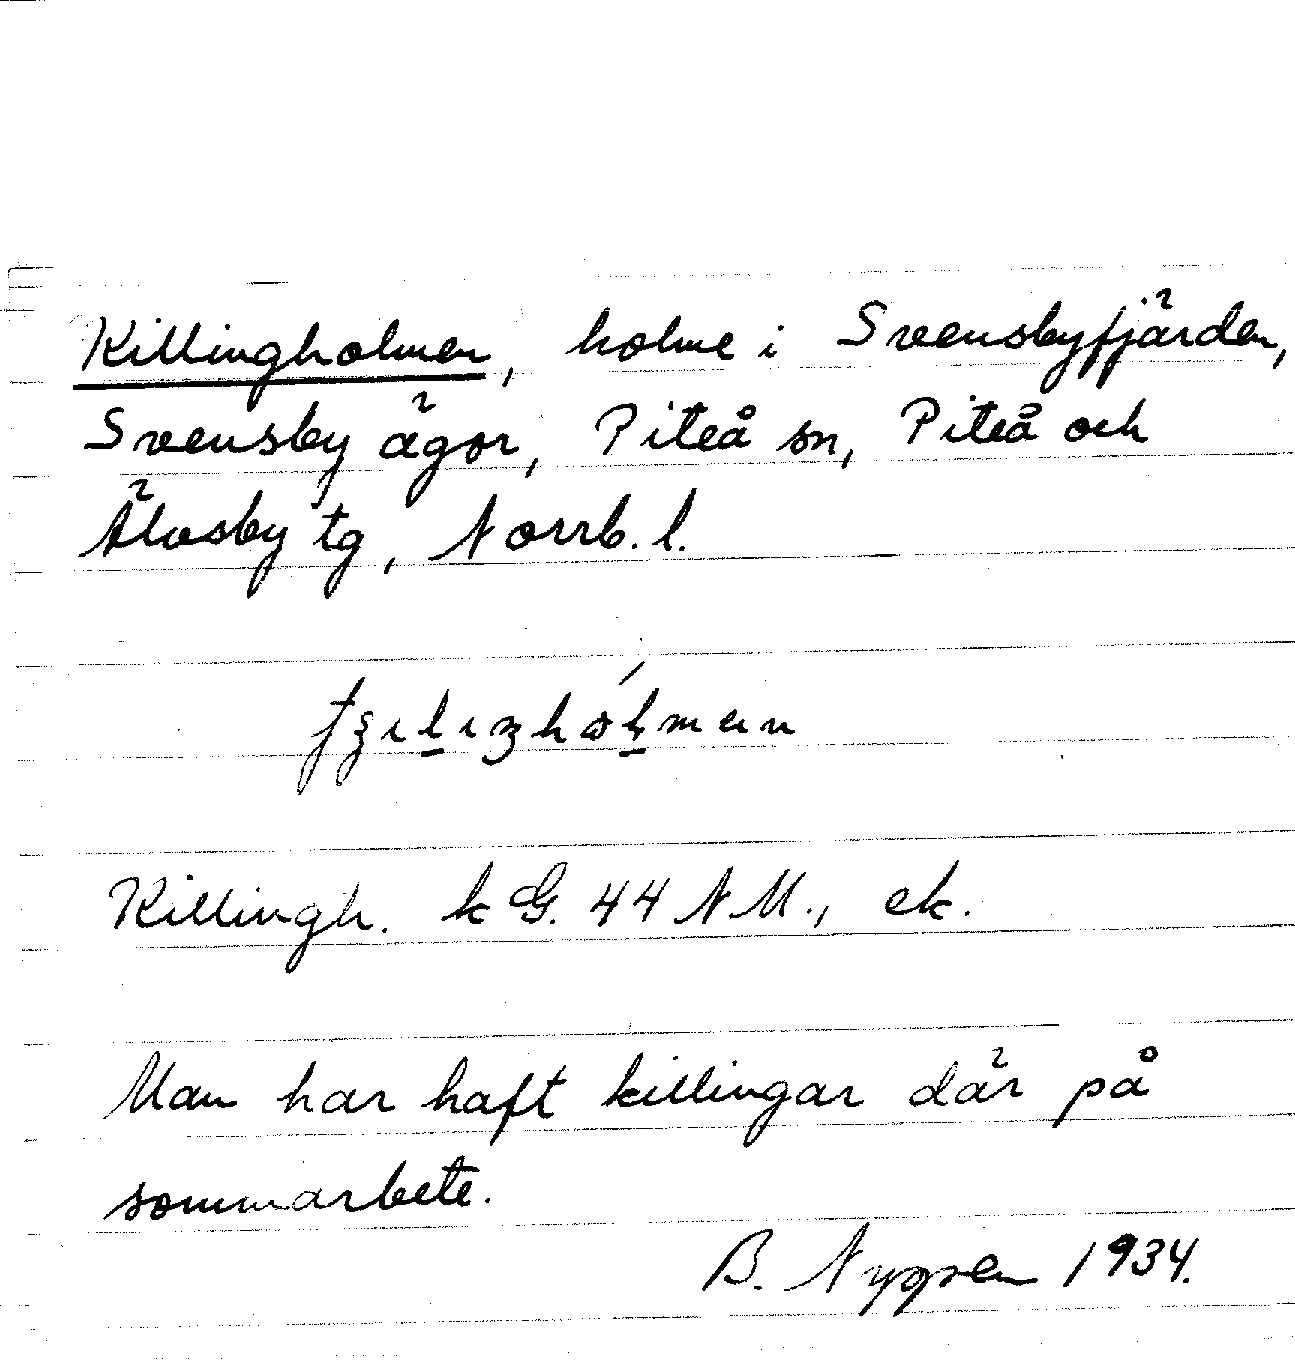 Killingholmen, holme i Svensbyfjärden,
Svensby ägor, Piteå sn, Piteå och
Älvsby tg, Norrb. l.
Killingh. k G. 44 N M., ek.
Man har haft killingar där på
sommarbete.
B. Nygren 1934.